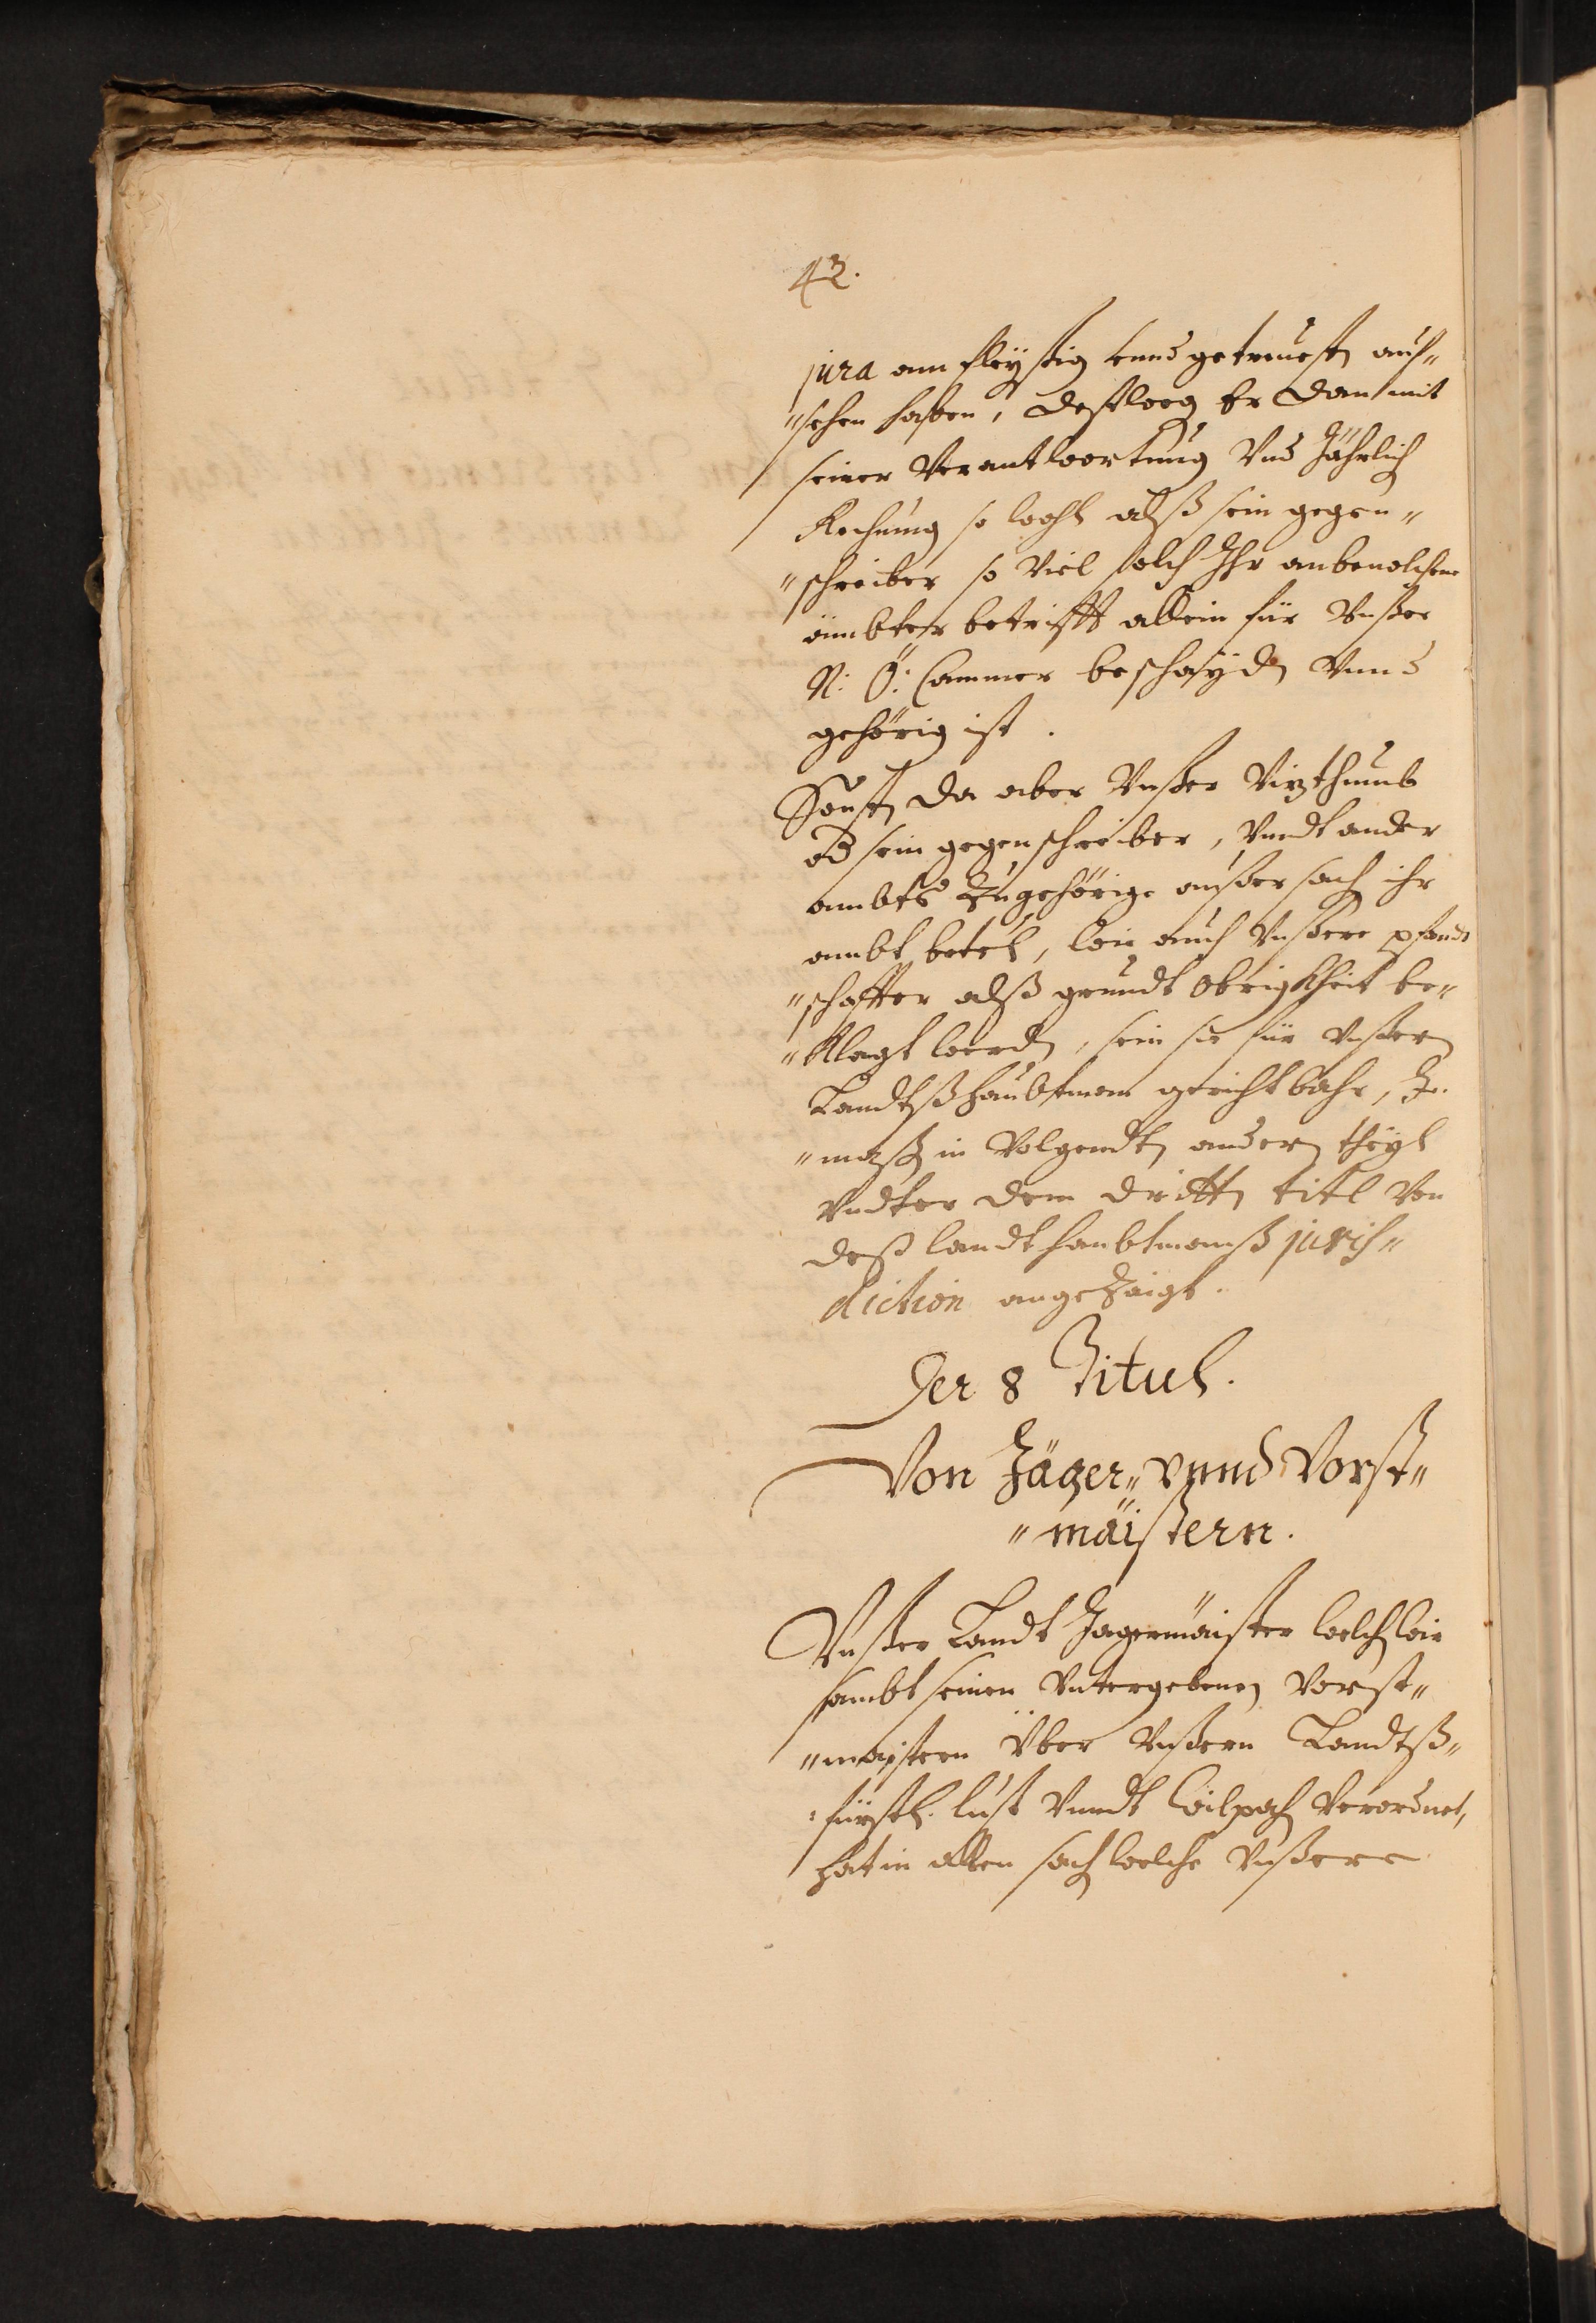 42.
jura am fleyßig unnd getreuesten auf„
„sehen haben, deßweg Er dan mit
seiner Verantworttung Und Jährlich
Rechnung so wohl alß sein gegen„
„schreiber so Viel solch Ihr anbevolchene
ämbter betrifft allein für Unßer
N: Ö: Cammer beschayden Unnd
gehörig ist.
Sonsten da aber Unßer Vizthumb
od sein gegenschreiber, Unndt ander
ambts Zugehörige ausser sach ihr
ambt betrl, wie auch Unßere pfandt
„schaffter alß grundt Obrigkheit be„
„klagt werden, sein sie für Unßern
Landtßhaubtman gerichtbahr, In„
„maßen in Volgendten andern theyl
Undter dem dritten titl Von
deß landt haubtmanß juris„
diction angezaigt.
Der 8 Titul.
Von Jäger„ Unnd Vorst„
„maistern.
Unßer Landt Jagermaister welchen wir
sambt seinen Untergebenen Vorst„
„maistern Über Unßern Landtß„
fürstl. lust Unndt wilpahn Verordnet,
hat in allen sach welche Unßere